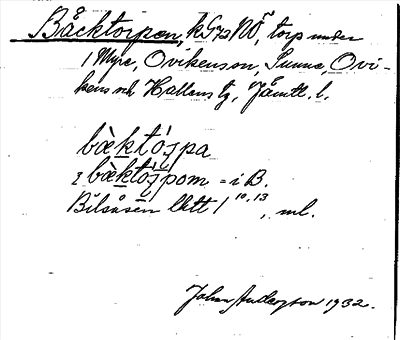 Bäcktorpen, kGrsNÖ, torp under
1 Myre, Ovikenson, Sunne, Ovi-
kens och Hallens tg, Jämtl. l.
bàktóspa
i bàktóspom = i B.
Bilsåsen lktt 1 10, 13, ml.
Johan Andersson 1932.